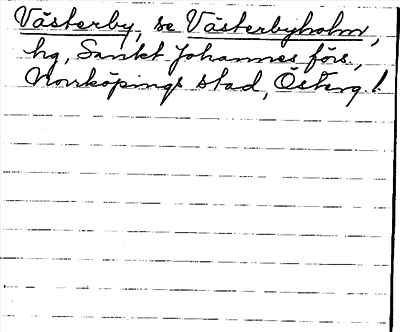 Västerby, se Västerbyholm,
hg, Sankt Johannes förs.,
Norrköpings stad, Österg. l.